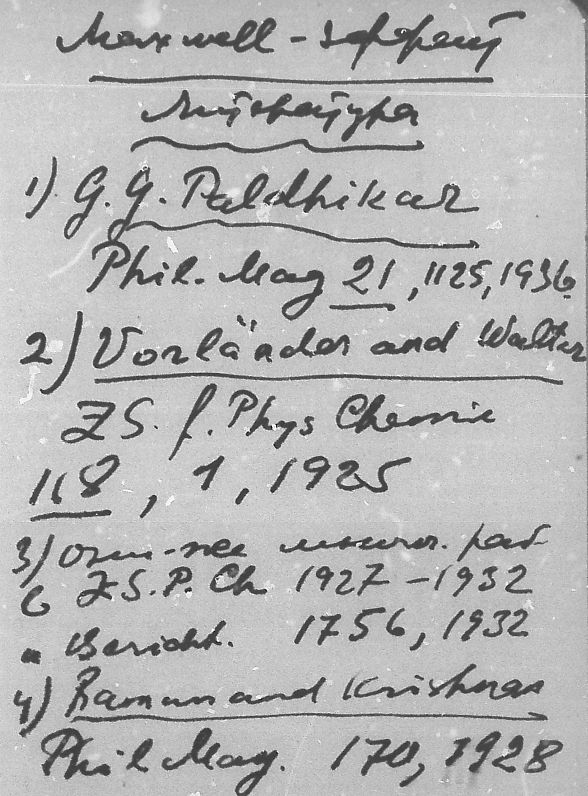 Maxwell - эффект
Литература
1) G. G. Paldhikar
Phil. Mag 21, 1125, 1936
2) Vorländer and Walter
ZS. f. Phys Chemie
118, 1, 1925
3)
в ZS. P. Ch 1927 - 1932
и Bericht. 1756, 1932
4) Raman and Krishnan
Phil Mag. 170, 1928